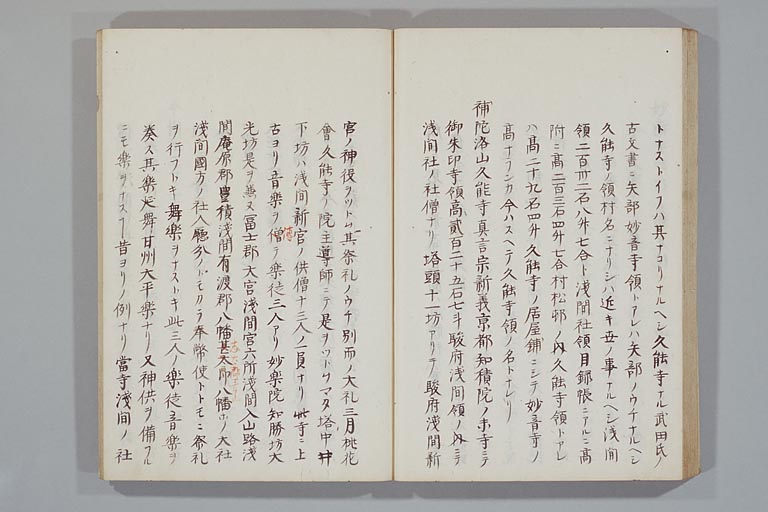 トナストイフハ其ナコリナルヘシ久能寺ニアル武田氏ノ
古文書ニ矢部妙音寺領トアレハ矢部ノウチナルヘシ
久能寺ノ領村名ニナリシハ近キ世ノ事ナルヘシ浅間
領二百卅二石八升七合ト浅間社領目録帳ニアルニ高
附ニ高二百三石四升七合村松邨ノ内久能寺領トアレ
ハ高二十九石四升久能寺ノ居屋鋪ニシテ妙音寺ノ
高ナランカ今ハスヘテ久能寺領ノ名トナレリ
補陀洛山久能寺真言宗新義京都知積院ノ末寺ニテ
御朱印寺領高貳百二十五石七斗駿府浅間領ノ内ニテ
浅間社ノ社僧ナリ塔頭十一坊アリテ駿府浅間新
官ノ神役ヲツトム其祭礼ノウチ別而ノ大礼三月桃花
會久能寺ノ院主導師ニテ是ヲツトムマタ塔中井
下坊ハ浅間新宮ノ供僧十三人ノ一員ナリ此寺ニ上
古ヨリ音楽ヲ僧テ楽徒三人アリ妙楽院知勝坊大
光坊是ヲ兼又冨士郡大宮浅間宮六所浅間入山路浅
間庵原郡豊積浅間有渡郡八幡甚太郎八幡ホノ大社
浅間國方ノ社人廳分ノトモカラ奉幣使トトモニ祭礼
ヲ行フトキ舞楽ヲナストキ此三人ノ楽徒音楽ヲ
奏ス其楽延舞甘州太平楽ナリ又神供ヲ備フル
ニモ楽ヲナス事昔ヨリノ例ナリ當寺浅間ノ社